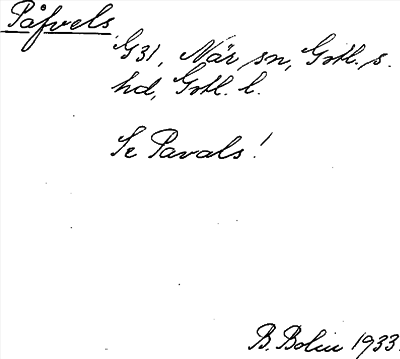 Påfvels
G31, När sn, Gotl. s.
hd, Gotl. l.
Se Pavals!
B. Bolin 1933.